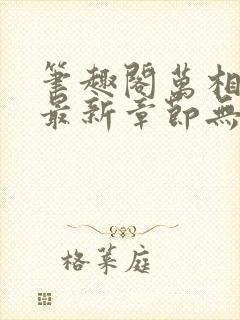 筆趣閣萬相
最新章節無
格萊庭